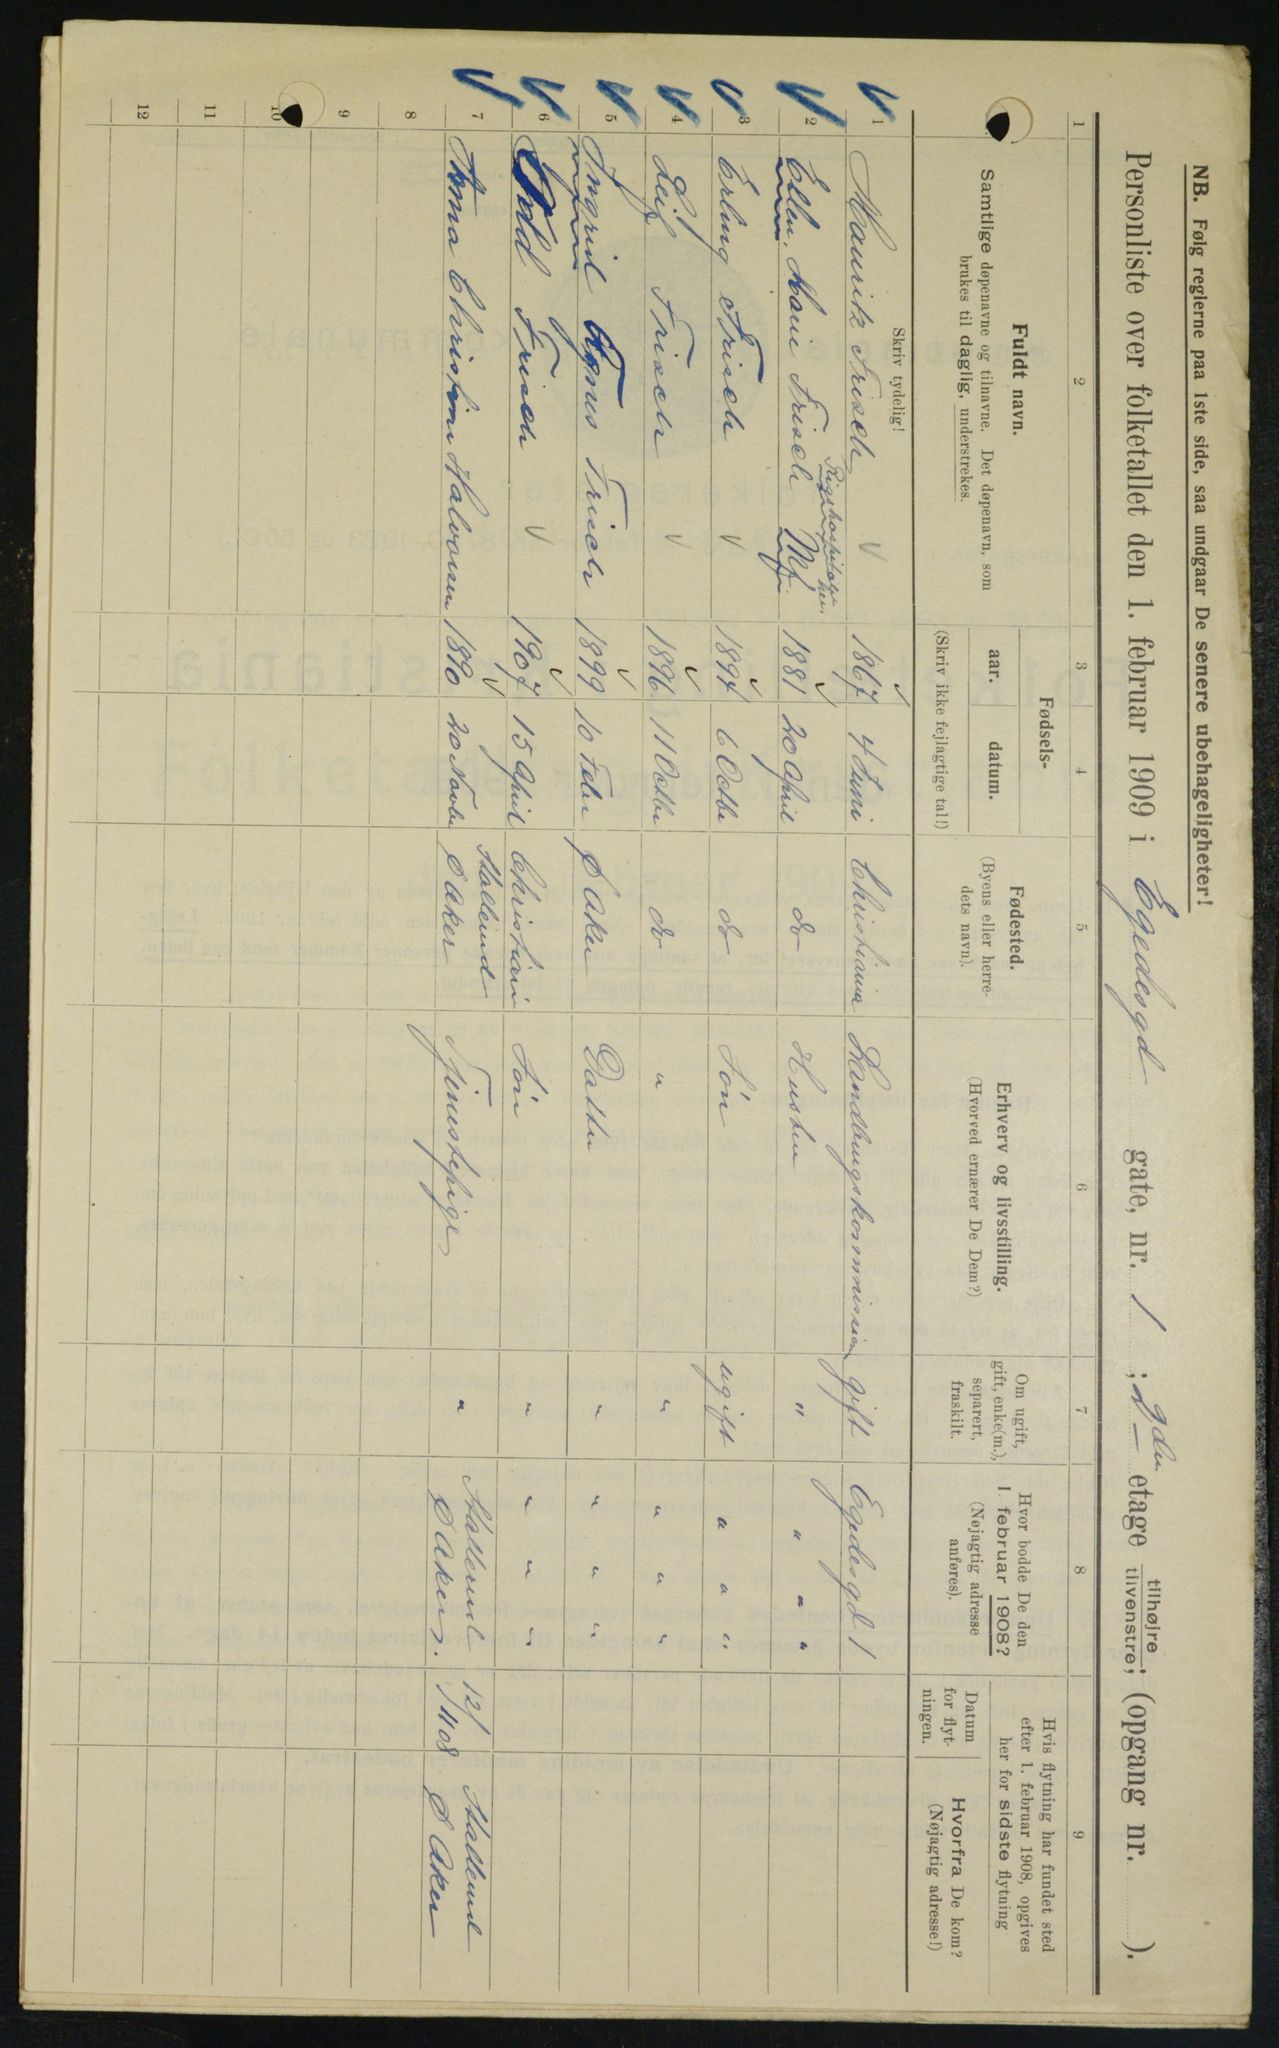 NB. Følg reglerne paa 1ste side, saa undgaar De senere ubehageligheter!
Personliste over folketallet den 1. februar 1909 i Egedesgd gate, nr. 1 ; 2den etage tilhøjre tilvenstre; (opgang nr. ).
1 2 3 4 5 6 7 8 9
Fuldt navn.
Samtlige døpenavne og tilnavne. Det døpenavn, som
brukes til daglig, understrekes.
Skriv tydelig!
Fødsels-
aar. datum.
(Skriv ikke fejlagtige tal!)
Fødested.
(Byens eller herre-
dets navn).
Erhverv og livsstilling.
(Hvorved ernærer De Dem?)
Om ugift,
gift, enke(m.),
separert,
fraskilt.
Hvor bodde De den
1. februar 1908?
(Nøjagtig adresse
anføres).
Hvis flytning har fundet sted
efter 1. februar 1908, opgives
her for sidste flytning
Datum
for flyt-
ningen.
Hvorfra De kom?
(Nøjagtig adresse!)
1 Mauritz Frisch 1867 4 Juni Christiania Handlingskommission gift Egedesgd 1
Rigshospitalet
2 Ellen Marie Frisch 1881 20 April do Hustru " " " "
3 Erling Frisch 1894 6 Octbr do Søn ugift " " "
4 Leif Frisch 1896 11 Octbr do " " " " "
5 Ingrid Agnes Frisch 1899 10 Febr Ø Aker Datter " " " "
6 Odd Frisch 1907 15 April Christiania Søn " " " "
7 Anna Christine Halvorsen 1890 20 Novbr Ø Aker Tjenestepige " Ø Aker. 12/11 08 Ø Aker
8
9
10
11
12